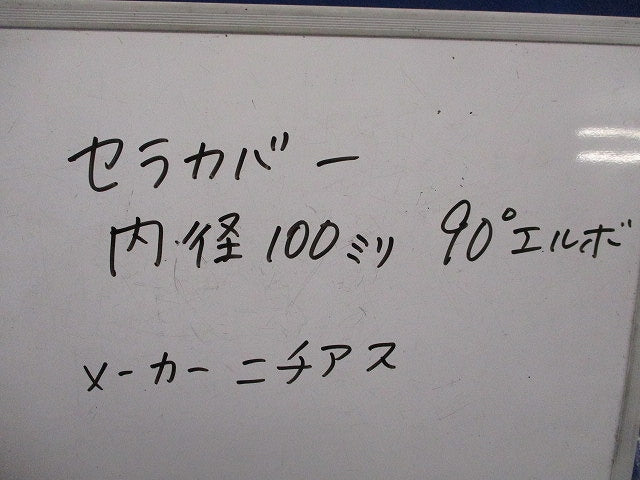 セラカバー
内径100ミリ 90°エルボ
メーカーニチアス